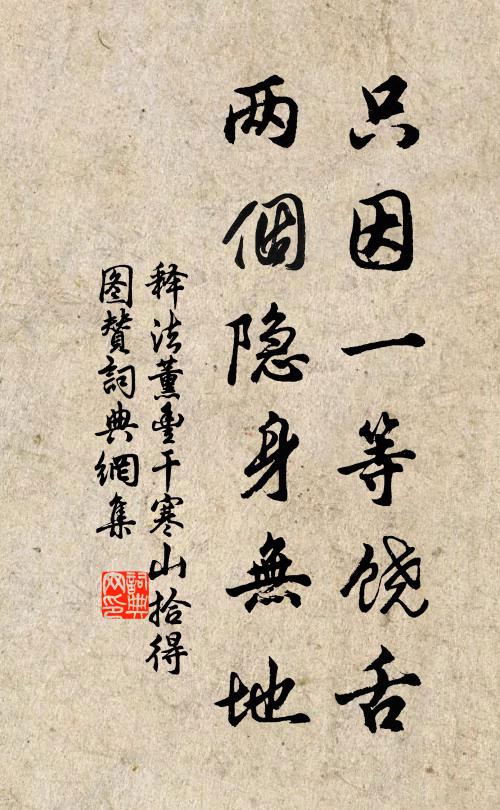 只因一等饶舌
两個隐身無地
释法薰豊干寒山拾得
图赞詞典網集
詞典网印